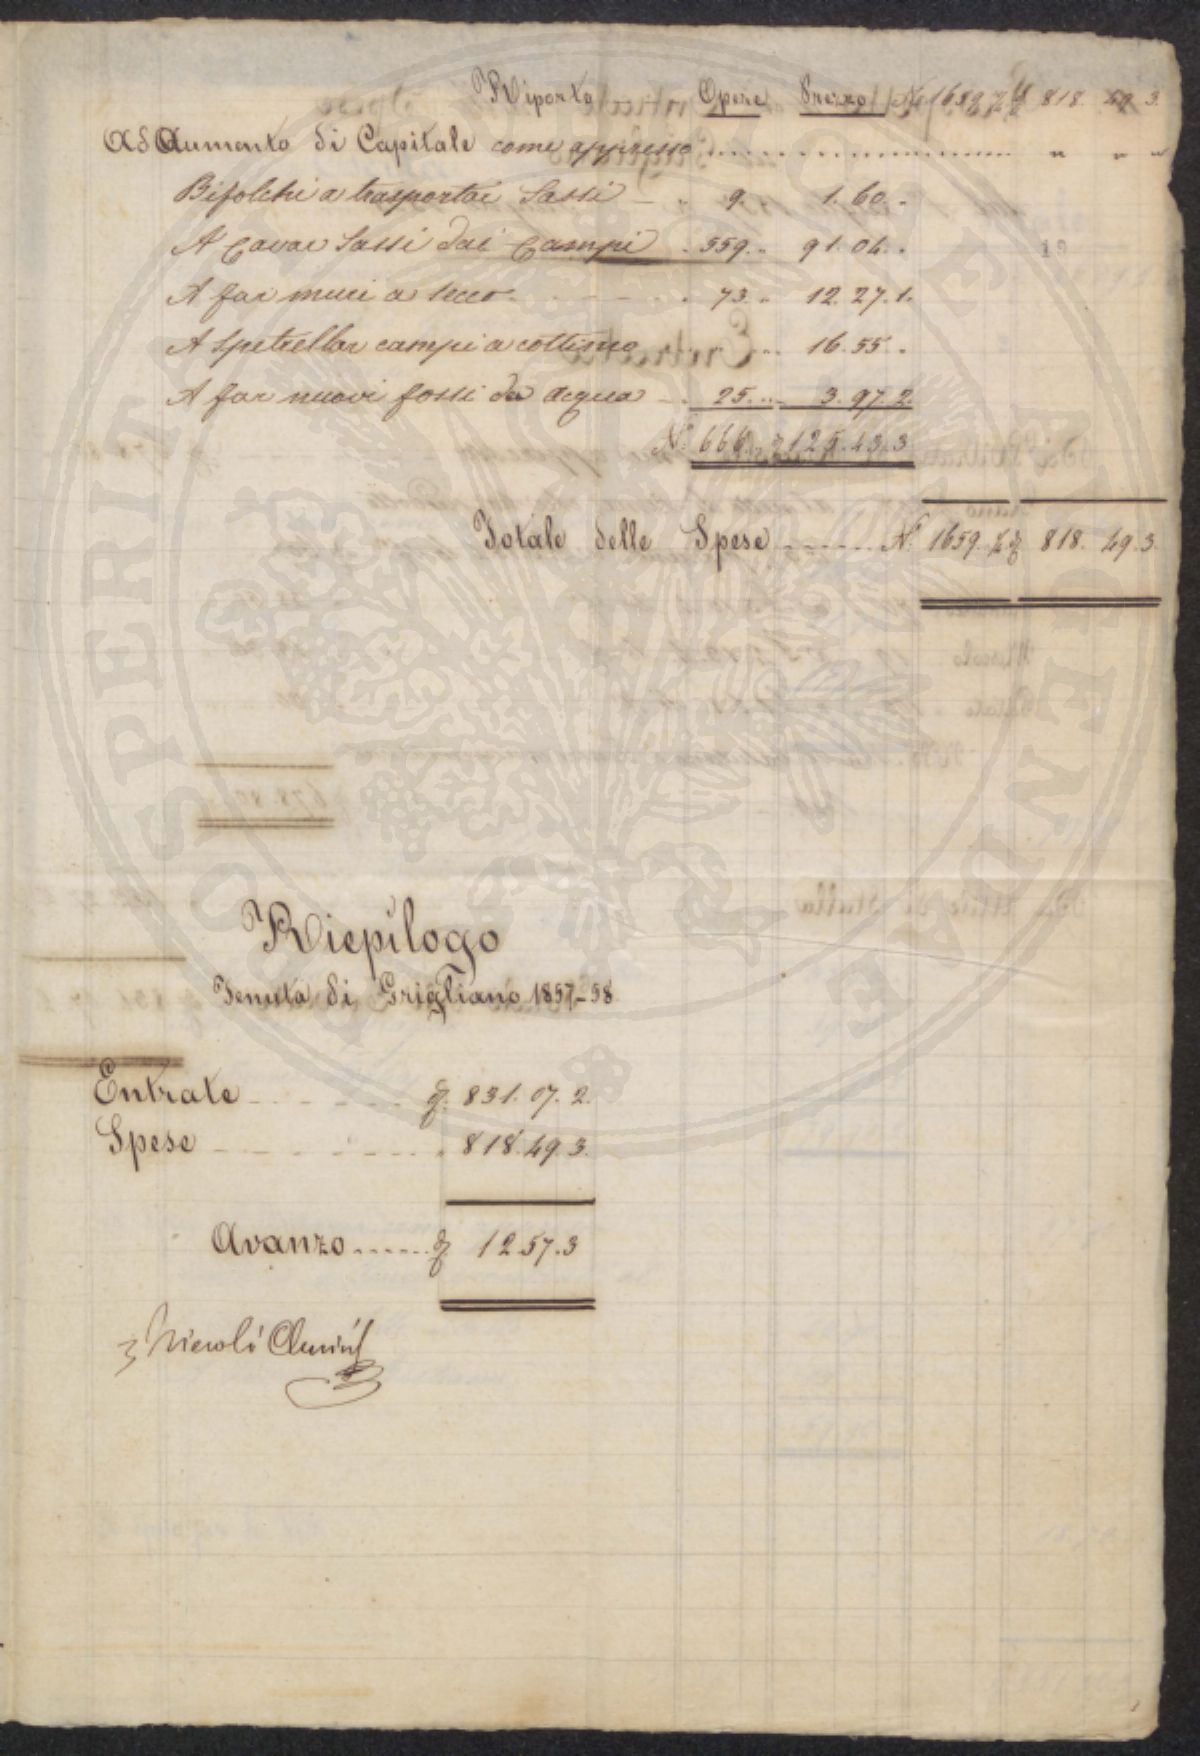 Riporto Opere Prezzo N. 1659. ½ 818. 49. 3.
Ad Aumento di Capitale come appresso " " "
Bifolchi a trasportar Sassi 9. " 1. 60. "
A Cavar Sassi dai Campi 559. " 91. 04. "
A far muri a secco 73. " 12. 27. 1.
A Spetrellar campi a cottimo " " 16. 55. "
A far nuovi fossi da acqua 25. " 3. 97. 2.
N. 666. " 125. 43. 3
Totale delle Spese N. 1659. ½ 818. 49. 3.
Riepilogo
Tenuta di Grigliano 1857-58
Entrate 831. 07. 2.
Spese 818. 49. 3.
Avanzo 12. 57. 3
Niccolò
PROSPERITATI AUGENDAE